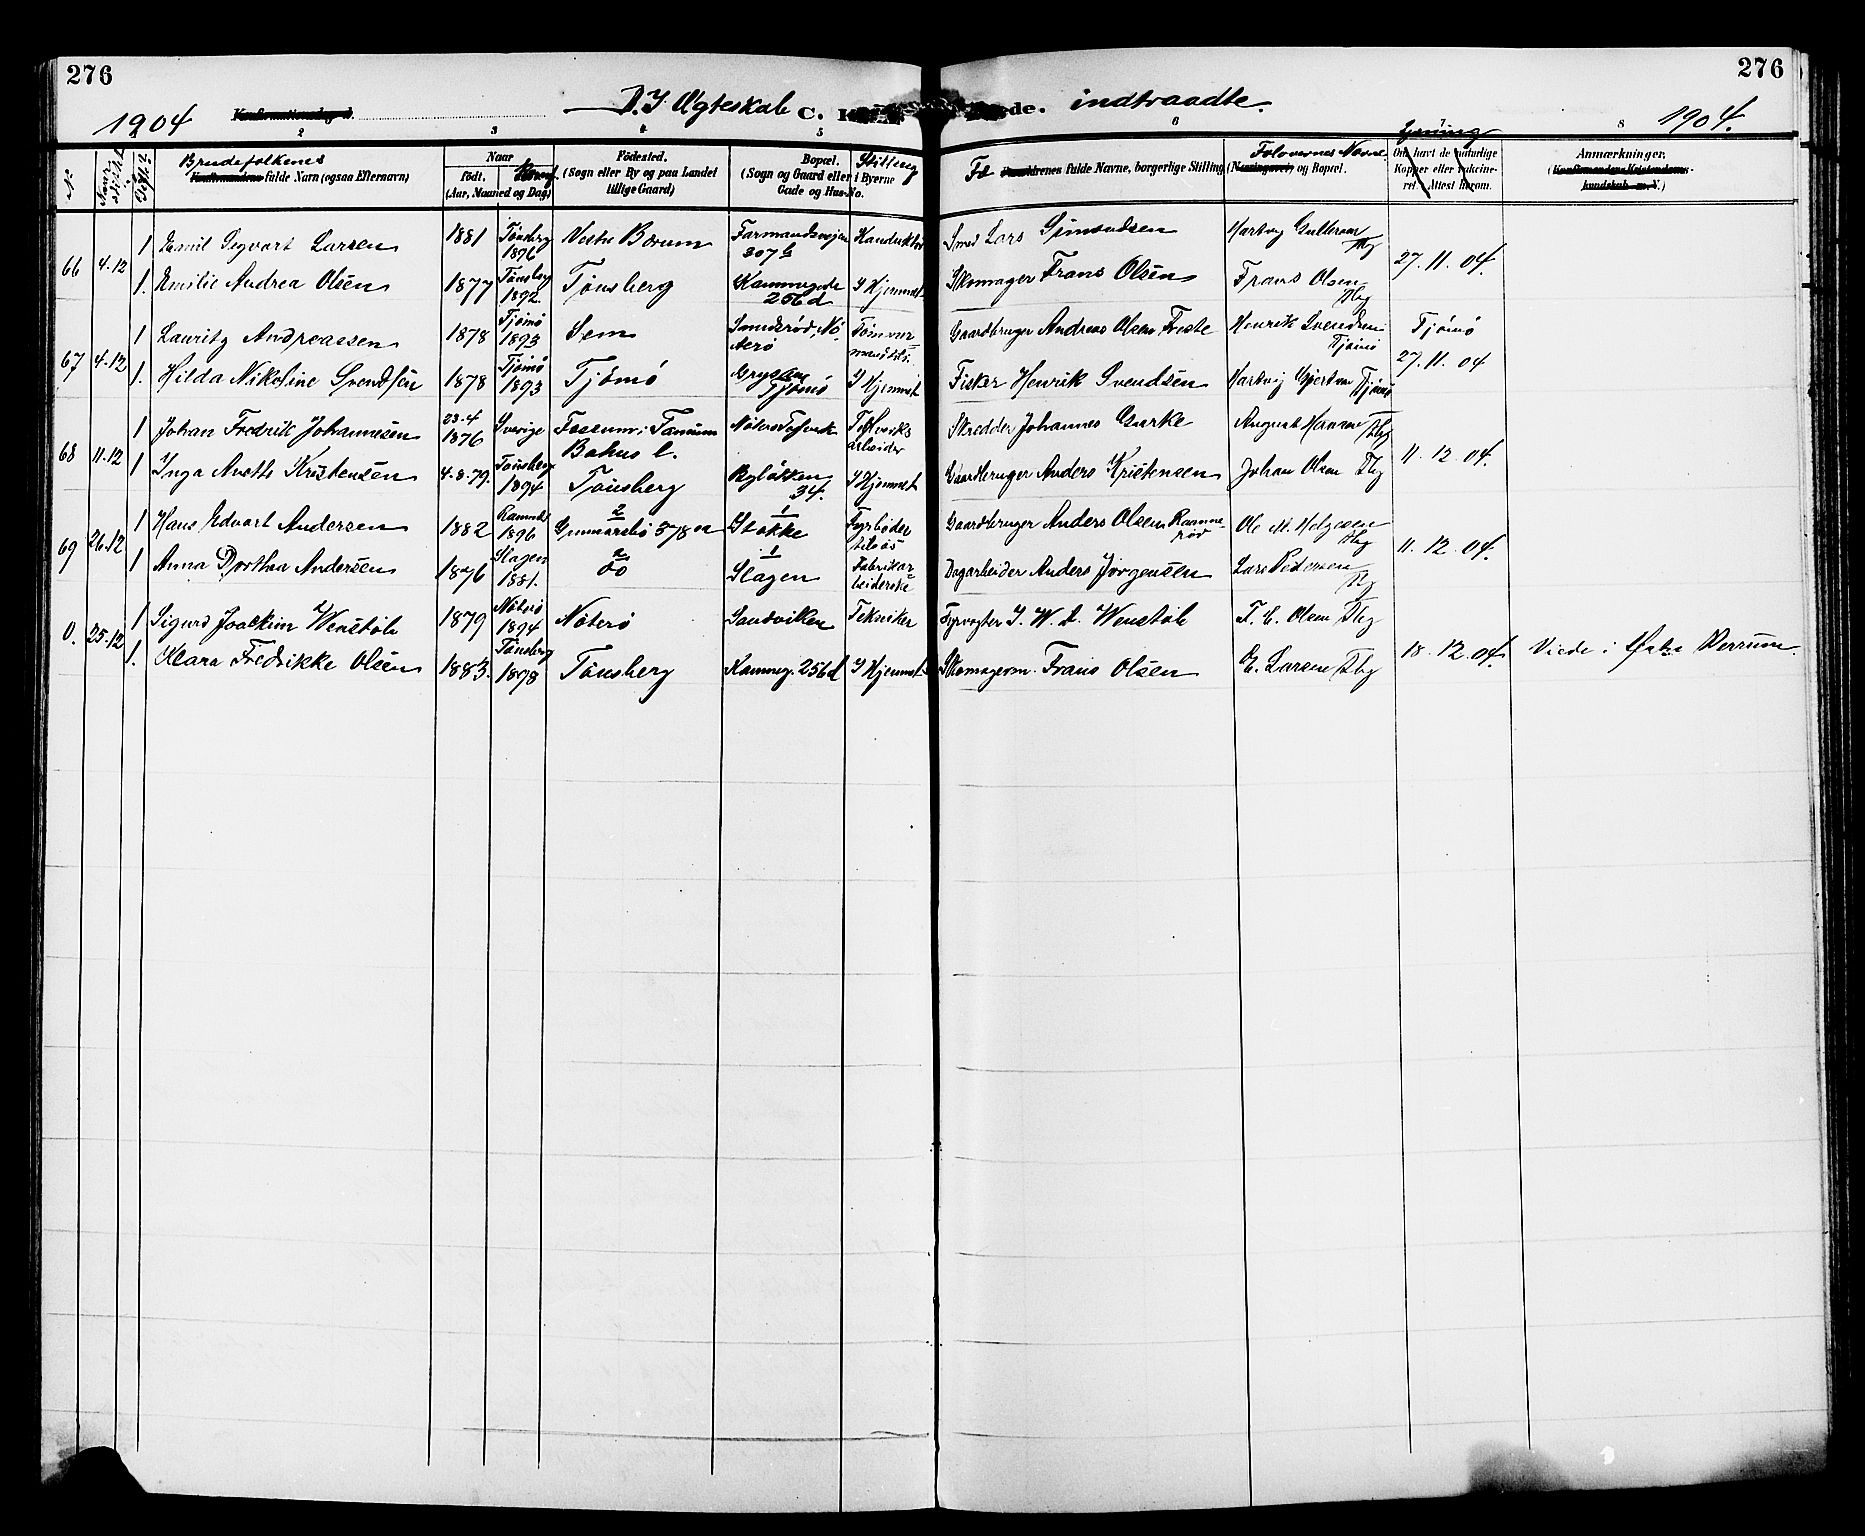 276
276
1904 Konfirmationsdag d. D. I Ægteskab C. K de. indtraadte. 1904.
2 3 4 5 6 7 8
No Brudefolkenes Konfirmandens fulde Navn (ogsaa Efternavn)
Naar Født. (Aar, Maaned og Dag)
Födested. (Sogn eller By og paa Landet tillige Gaard)
Bopæl. (Sogn og Gaard eller i Byerne Gade og Hus-No.
Stilling
Forældrenes fulde Navne, borgerlige Stilling
Forlovernes Navne og Bopæl.
Lysning
Om havt de naturlige Kopper eller vakcineret. Attest herom.
Anmærkninger. (Konfirmandens Kristendomskundskab m. V.)
66 4-12 1 Emil Sigvart Larsen 1881 Tønsberg 1896 Vestre Borum Farmandsveien 307 b Smed Lars Simondsen Hartvig Gullersen Tbg 27. 11. 04.
1. Emilie Andrea Olsen 1877 Tønsberg 1892 Tønsberg Kammegade 256 d I Hjemmet Skomager Frans Olsen Frans Olsen Tbg
67 4-12 1 Lauritz Andreassen 1878 Tjømø 1893 Sem Smiderød, Nøterø Gaardbruger Andreas Olsen Henrik Svendsen Tjømø Tjömö 27. 11. 04
1. Hilda Nikoline Svendsen 1878 Tjømø 1893 Tjömö Tjømø I Hjemmet Fisker Henrik Svendsen Hartvig Gjertsen Tjømø
68 11-12 1 Johan Fredrik Johannesen 23-4 1876 Sverige Fossum i Tanum Bohus l. Nøterø arbeider Skredder Johannes Gurke August Hansen Tbg 11. 12. 04.
1 Inga Anette Kristensen 4-8-79. Tønsberg 1894 Tønsberg Bylökken 34. I Hjemmet Gaardbruger Anders Kristensen Johan Olsen Tbg
69 26-12 1 Hans Edvart Andersen 1882 Ramnes 1896 2 Gunnarsbö 578 a 1 Stokke Fyrbøder Gaardbruger Anders Olsen Ramnerød Ole M. Helgesen Tbg 11. 12. 04.
1 Anna Dorthea Andersen 1876 Slagen 1881. 2 do 1 Slagen Fabrikarbeiderske Dagarbeider Anders Jørgensen Lars Pedersen Tbg
0. 25-12 1 Sigurd Joackim Wenstöb 1879 Nøterø 1894 Nöterö Sandviken Tekniker Fyrvogter I. W. A. Wenstöb F. E. Olsen Tbg 18. 12. 04. Viede i Verrum.
1. Klara Fredrikke Olsen 1883. Tønsberg 1898 Tönsberg Kammeg. 256 d I Hjemmet Skomagerm. Frans Olsen E. Larsen Tbg